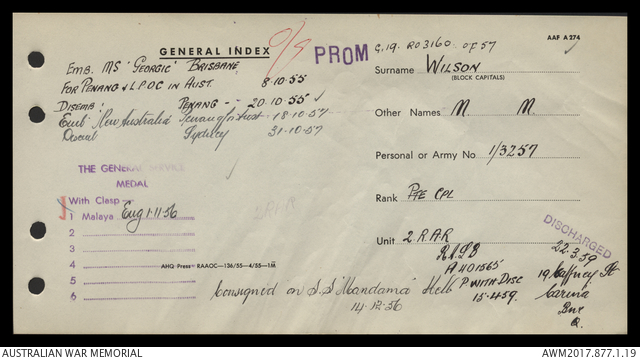 GENERAL INDEX
O/S
PROM
C.19. R03160. OF 57
AAF A 274
EMB. MS 'GEORGIC' BRISBANE
FOR PENANG & L.P.O.C IN AUST. 8·10·55
DISEMB: PENANG -- 20·10·55
Emb. New Australia Penang for Aust. 18·10·57
Disemb Sydney 31·10·57
Surname WILSON
(BLOCK CAPITALS)
Other Names M. M.
Personal or Army No. 1/3257
Rank PTE CPL
Unit 2 RAR
A1101565
P WITH DISC
15·4·59.
THE GENERAL SERVICE
MEDAL
With Clasp—
1 Malaya Eng 1·11·56
2
3
4
5
6
2 RAR
AHQ Press—RAAOC—136/55—4/55—1M
Consigned on S.S. "Mandama"
14·12·56
DISCHARGED
22.3.59
19 Gaffney St
Carina
Bne
Q.
AUSTRALIAN WAR MEMORIAL
AWM2017.877.1.19